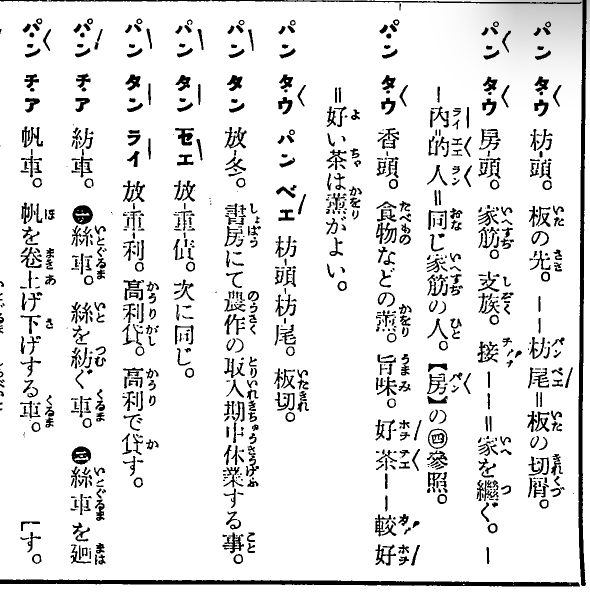 パン タウ 枋-頭。 板の先。 ――枋尾=板の切屑。
パン タウ 房-頭。 家筋。 支族。 接――=家を繼ぐ。 ―
―內的人=同じ家筋の人。 【房】の㊃參照。
パン タウ 香-頭。 食物などの薰。 旨味。 好茶――較好
=好い茶は薰がよい。
パン タウ パン ベエ 枋-頭-枋-尾。 板切。
パン タン 放-冬。 書房にて農作の取入期中休業する事。
パン タン セエ 放-重-債。 次に同じ。
パン タン ライ 放-重-利。 高利貸。 高利で貸す。
パン チア 紡-車。 ㊀絲車。 絲を紡ぐ車。 ㊁絲車を廻
パン チア 帆-車。 帆を卷上げ下げする車。 [す。